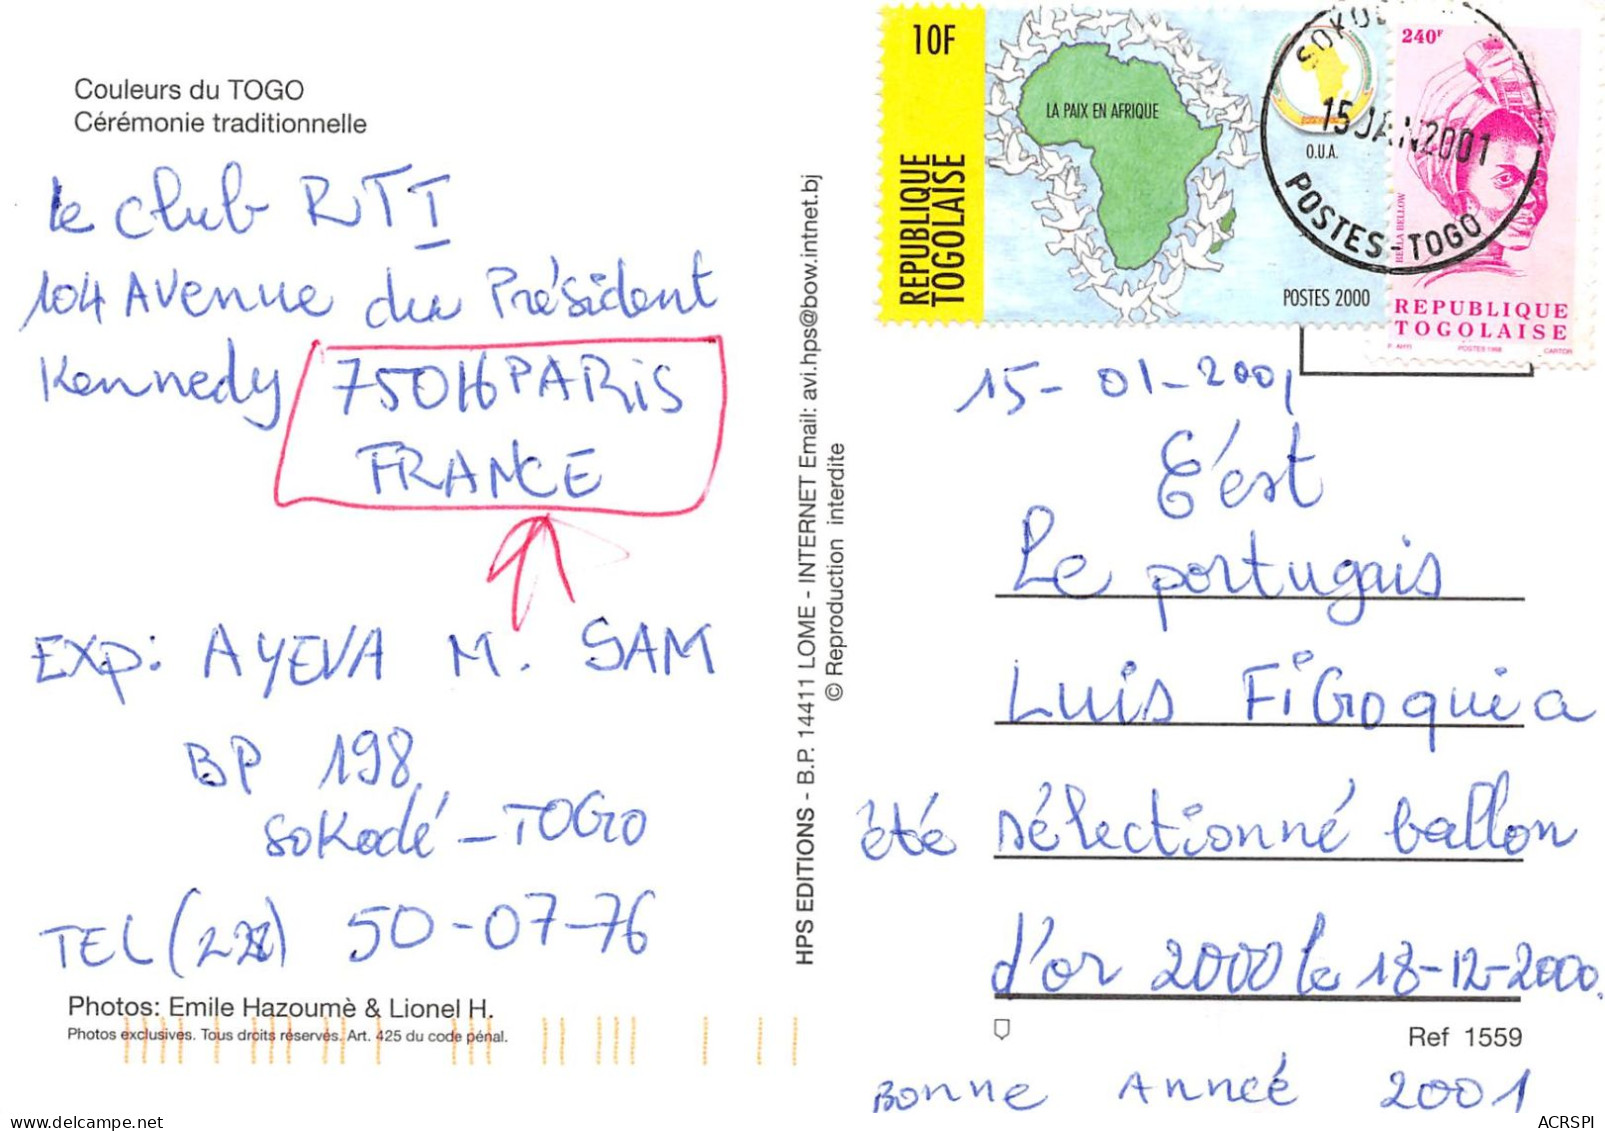 Couleurs du TOGO
Cérémonie traditionnelle
le club RTI
104 Avenue du Président
Kennedy 75016 PARIS
FRANCE
EXP: AYEVA M. SAM
BP 198
SOKodé - TOGO
TEL (228) 50-07-76
Photos: Emile Hazoumè & Lionel H.
Photos exclusives. Tous droits réservés. Art. 425 du code pénal.
HPS EDITIONS - B.P. 14411 LOME - INTERNET Email: avi.hps@bow.intnet.bj
© Reproduction interdite
10F
REPUBLIQUE
TOGOLAISE
LA PAIX EN AFRIQUE
O.U.A.
POSTES 2000
240F
BELLA BELLOW
REPUBLIQUE
TOGOLAISE
P. AHYI POSTES 1998 CARTOR
15 JAN 2001
POSTES - TOGO
15-01-2001
C'est
Le portugais
LUIS FIGO qui a
été sélectionné ballon
d'or 2000 le 18-12-2000.
Ref 1559
BONNE ANNéE 2001
ACRSPI